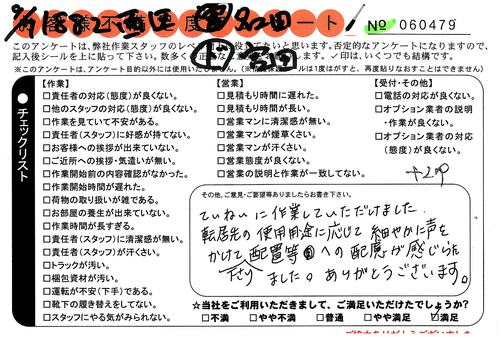 お客様満足度アンケート
No 060479
このアンケートは、弊社作業スタッフのレベル向上に役立てたいと思います。否定的なアンケートになりますので、
記入後シールを上に貼って下さい。
✓印は、いくつでも結構です。
※このアンケートは、アンケート目的以外には使用いたしません。
は1度がすと、再度貼りなおすことはできません
チェックリスト
【作業】
□責任者の対応(態度)が良くない。
□他のスタッフの対応(態度)が良くない。
□作業を見ていて不安がある。
□責任者(スタッフ)に好感が持てない。
□お客様への挨拶が出来ていない。
□ご近所への挨拶・気遣いが無い。
□作業開始前の内容確認がなかった。
□作業開始時間が遅れた。
□荷物の取り扱いが雑である。
□お部屋の養生が出来ていない。
□作業時間が長すぎる。
□責任者(スタッフ)に清潔感が無い。
□責任者(スタッフ)が汗くさい。
□トラックが汚い。
□梱包資材が汚い。
□運転が不安(下手)である。
□靴下の履き替えをしてない。
□スタッフにやる気がみられない。
【営業】
□見積もり時間に遅れた。
□見積もり時間が長い。
□営業マンに清潔感が無い。
□営業マンが煙草くさい。
□営業マンが汗くさい。
□営業態度が良くない。
□営業の説明と作業が一致してない。
【受付・その他】
□電話の対応が良くない。
□オプション業者の説明
・作業が良くない。
□オプション業者の対応
(態度)が良くない。
その他、ご意見・ご要望等ありましたらお書き下さい。
ていねいに作業していただけました。
転居先の使用用途に応じて細やかに声を
かけて下さり配置等への配慮が感じられ
ました。ありがとうございます。
☆当社をご利用いただきまして、ご満足いただけたでしょうか?
□不満 □やや不満 □普通 □やや満足 ☑満足